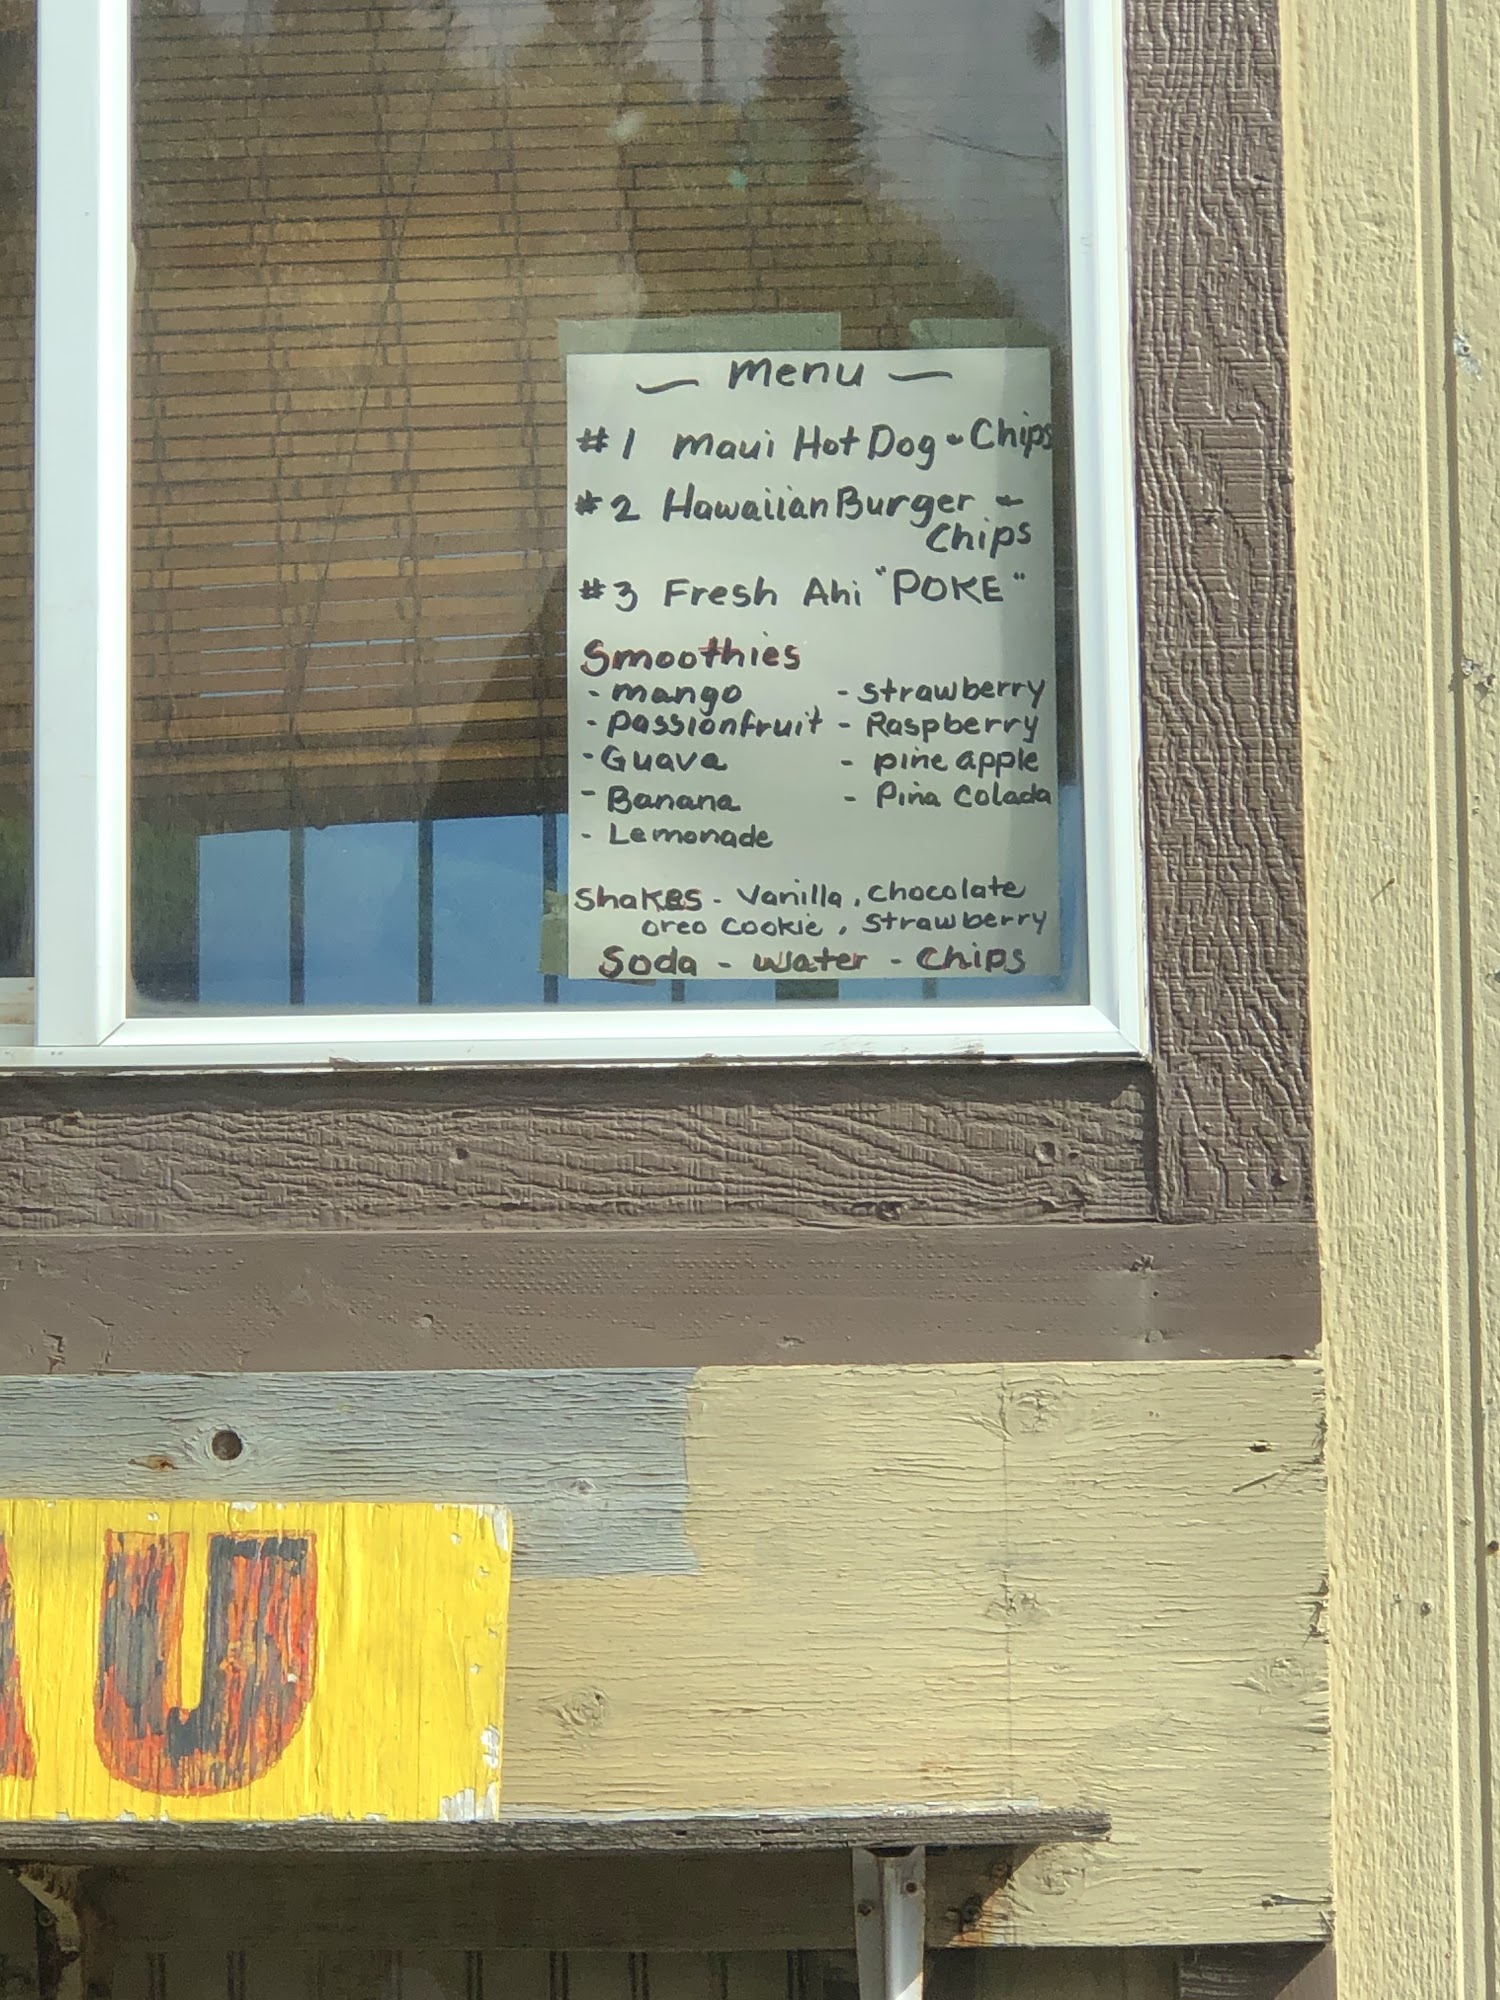 ~ Menu ~
#1 Maui Hot Dog & Chips
#2 Hawaiian Burger &
Chips
#3 Fresh Ahi "POKE"
Smoothies
- mango - strawberry
- passionfruit - Raspberry
- Guava - pine apple
- Banana - Piña Colada
- Lemonade
Shakes - Vanilla, chocolate
oreo cookie, strawberry
Soda - water - chips
U